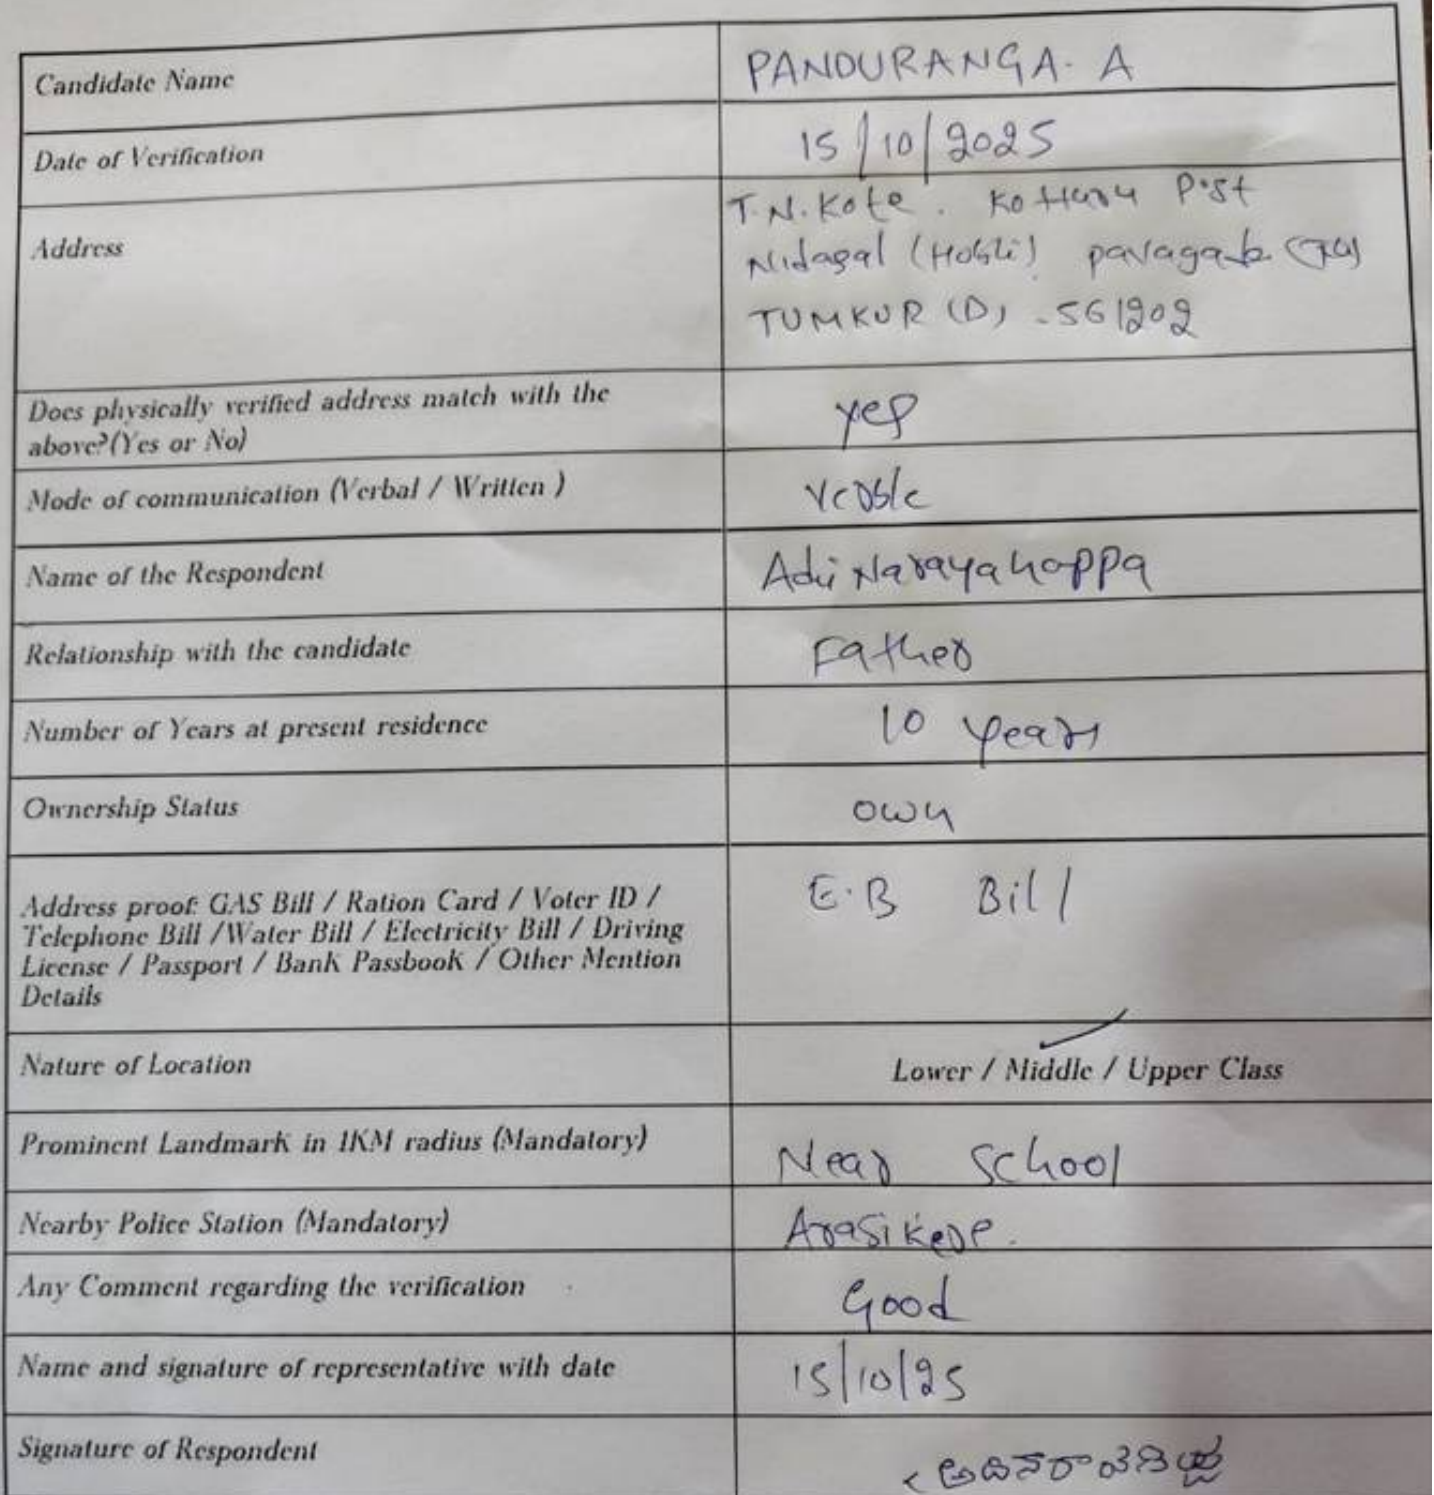 Candidate Name PANDURANGA. A
Date of Verification 15/10/2025
Address T.N. Kote. Kotturu Post
Nidagal (Hobli) pavagada (TQ)
TUMKUR (D) - 561202
Does physically verified address match with the
above?(Yes or No) yes
Mode of communication (Verbal / Written )
Name of the Respondent Adi Narayanappa
Relationship with the candidate Father
Number of Years at present residence 10 years
Ownership Status own
Address proof: GAS Bill / Ration Card / Voter ID / E.B Bill
Telephone Bill /Water Bill / Electricity Bill / Driving
License / Passport / Bank Passbook / Other Mention
Details
Nature of Location Lower / Middle / Upper Class
Prominent Landmark in 1KM radius (Mandatory) Near School
Nearby Police Station (Mandatory) Arasikere.
Any Comment regarding the verification Good
Name and signature of representative with date 15/10/25
Signature of Respondent